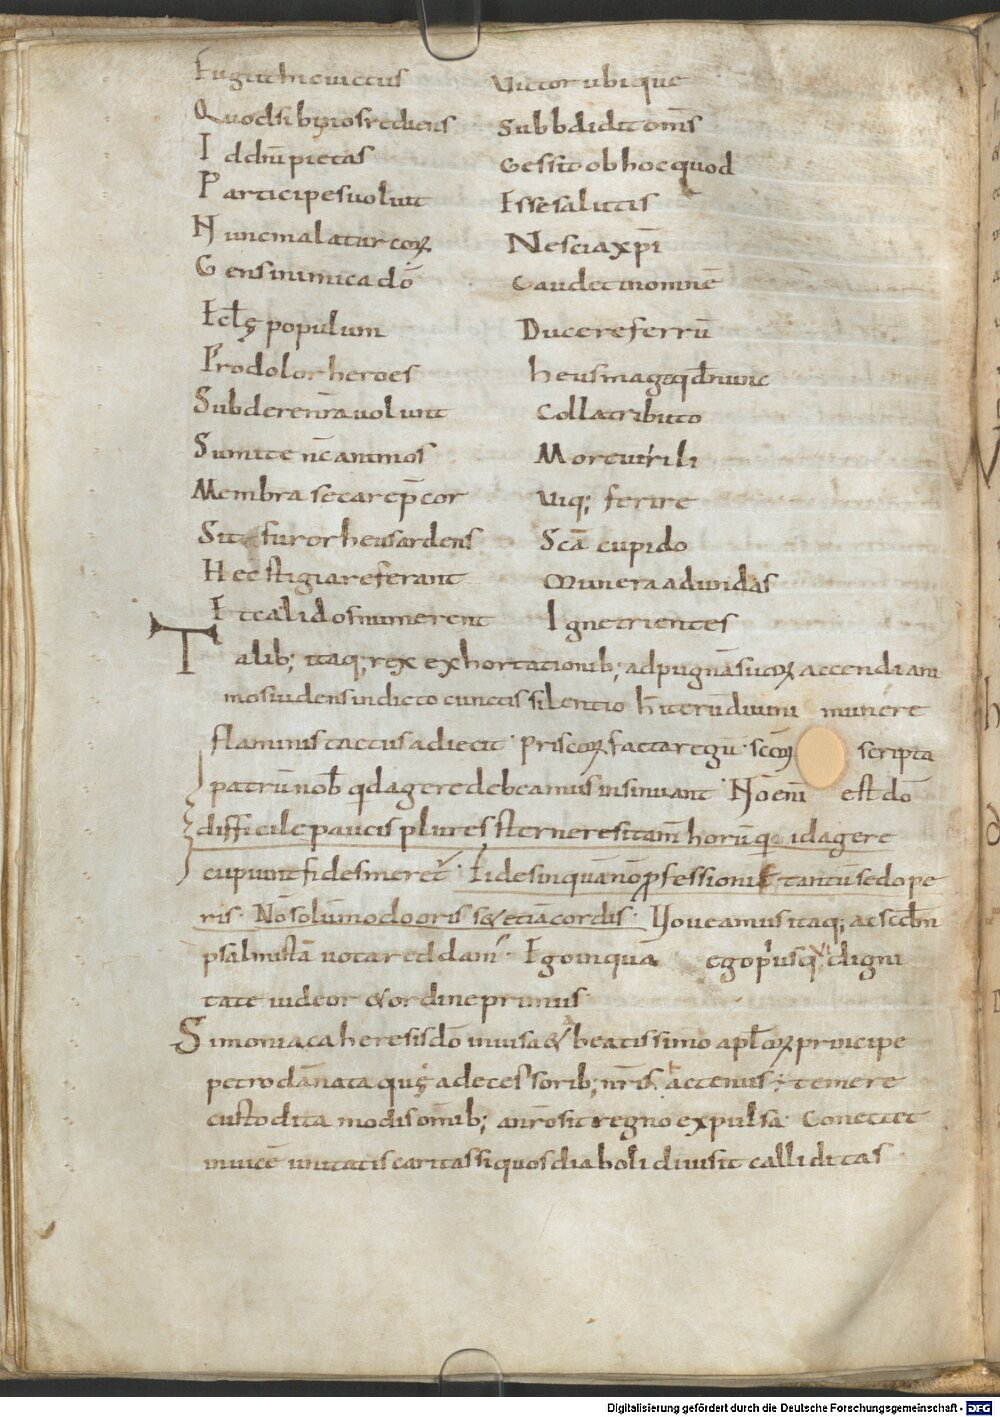 Fugit hic uictus Victor ubique
Quod si bis nos rediens Subbdidit om̄s
Id dn̄i pietas Gessit ob hoc quod
Participes uoluit Esse salutis
Nunc mala tartarcoꝝ Nescia xp̄i
Gens inimica dō Gaudet in omnē
Eccl̄ę populum Ducere ferrū
Prodolor heroes heus magę qđ nunc
Subdere nr̄a uolunt Colla tributo
Sumite nc̄ animos More uirili
Membra secare p̄cor Viq; ferire
Sit furor heus ardens Sc̄a cupido
Hec stigia referant Munera ad undas
Et calidos numerent Igne trientes
Talib; itaq; rex exhortationib; ad pugnā suoꝝ accendi ani
mos uidens indicto cunctis silentio h̄ iterū diuini munere
flaminis tactus adiecit. Priscoꝝ facta regū. sc̄oꝝ scripta
patrū nob̄ qd agere debeamus insinuant. Nō enī est dō
difficile paucis plures sternere si tam̄ horū q id agere
cupiunt fides meret͛. Fides inquā nō ꝓfessionis tantū sed ope
ris. Nō solūmodo oris s& etiā cordis. Uoueamus itaq; ac scd̄m
psalmistā uota reddam͛. Ego inquā ego prius qui digni
tate uideor & ordine primus
Simoniaca heresis dō inuisa & beatissimo apl̄oꝝ principe
petro dānata quę a decessorib; nr̄is actenus temere
custodita modis om̄ib; a nr̄o sit regno expulsa. Conectet
inuicē unitatis caritas si quos diaboli diuisit calliditas.
Digitalisierung gefördert durch die Deutsche Forschungsgemeinschaft - DFG